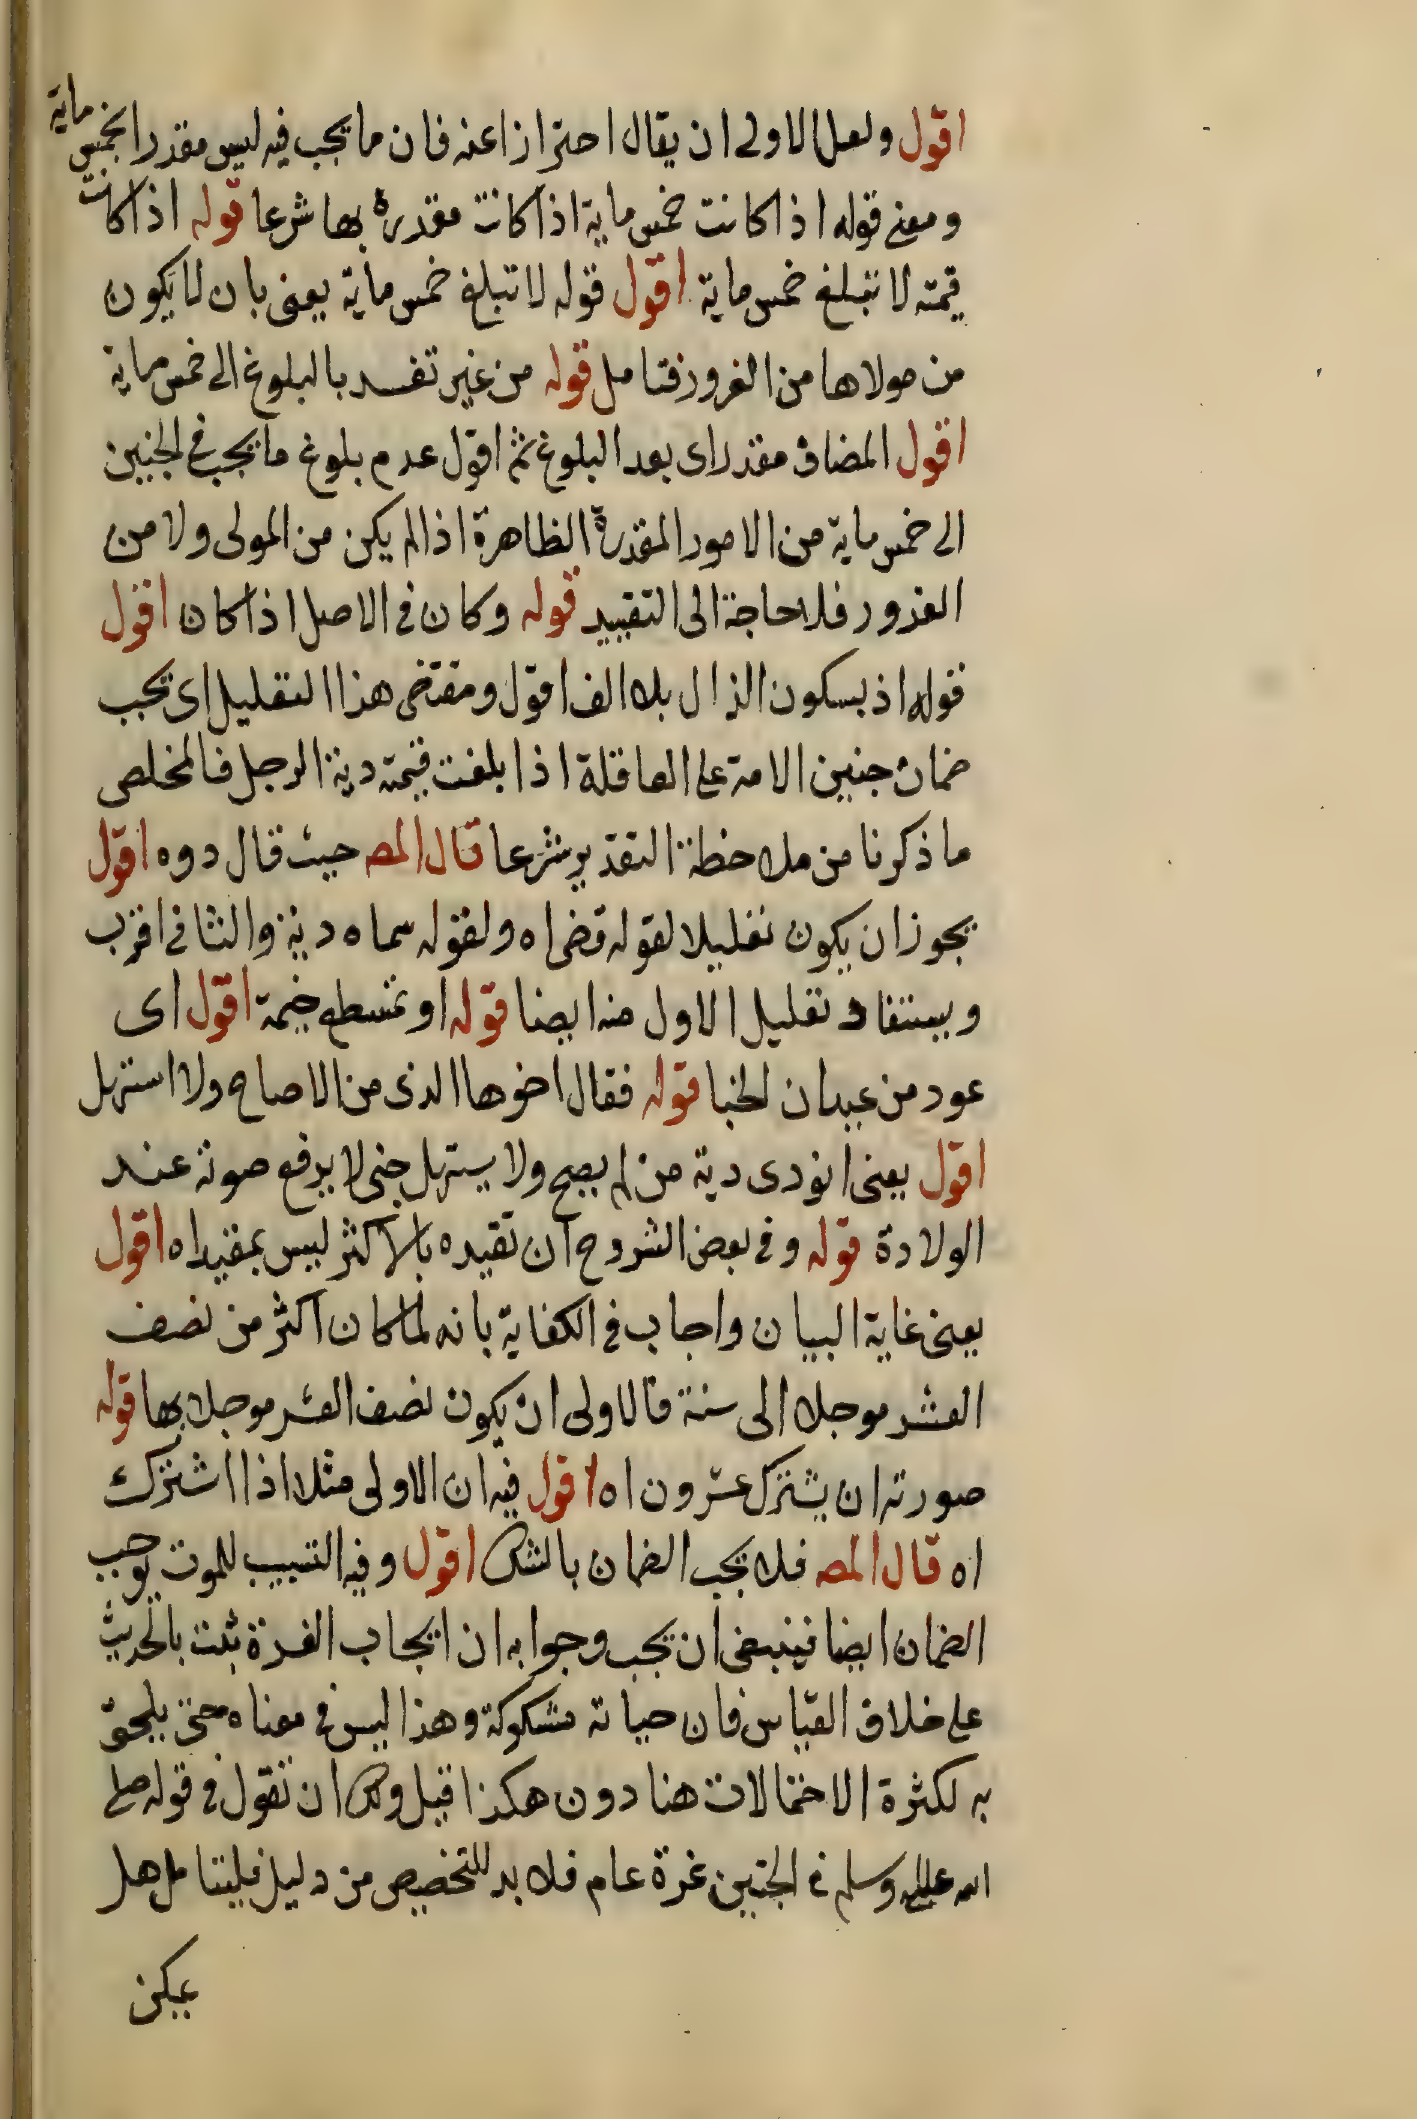 اقول ولعل الاولى ان يقال احترازا عنه فان ما يجب فيه ليس مقدرا بخمس ماية
ومعنى قوله اذا كانت خمس ماية اذا كانت مقدرة بها شرعا قوله اذا كانت
قيمته لا تبلغ خمس ماية اقول قوله لا تبلغ خمس ماية يعنى بان لا يكون
من مولاها من الغرور فتامل قوله من غير تفسد بالبلوغ الى خمس ماية
اقول المضاف مقدر اى بعد البلوغ ثم اقول عدم بلوغ ما يجب في الجنين
الى خمس ماية من الامور المقدرة الظاهرة اذا لم يكن من المولى ولا من
الغرور فلا حاجة الى التقييد قوله وكان في الاصل اذا كان اقول
قوله اذ بسكون الذال بلا الف اقول ومقتضى هذا التعليل اى يجب
ضمان جنين الامة على العاقلة اذا بلغت قيمته دية الرجل فالمخلص
ما ذكرنا من ملاحظة التقدير شرعا قال المصـ حيث قال دوه اقول
يجوز ان يكون تعليلا لقوله قضى اه ولقوله سماه دية والثانى اقرب
ويستفاد تعليل الاول منه ايضا قوله او بمسطح خيمة اقول اى
عود من عيدان الخبا قوله فقال اخوها الذى من الاصاح ولا استهل
اقول يعنى انودى دية من لم يصح ولا يستهل حتى لا يرفع صوته عند
الولادة قوله وفي بعض الشروح ان تقيده بالاكثر ليس بمفيد اه اقول
يعنى غاية البيان واجاب في الكفاية بانه لما كان اكثر من نصف
العشر موجلا الى سنة فالاولى ان يكون نصف العشر موجلا بها قوله
صورته ان يشترك عشرون اه اقول فيه ان الاولى مثلا اذا اشترك
اه قال المصـ فلا يجب الضمان بالشك اقول وفيه التسبيب للموت يوجب
الضمان ايضا فينبغى ان يجب وجوابه ان ايجاب الغرة ثبت بالحديث
على خلاف القياس فان حياته مشكوكة وهذا ليس في معناه حتى يلحق
به لكثرة الاحتمالات هنا دون هكذا قيل ولك ان تقول في قوله صلى
الله عليه وسلم في الجنين غرة عام فلا بد للتخصيص من دليل فليتامل هل
يمكن